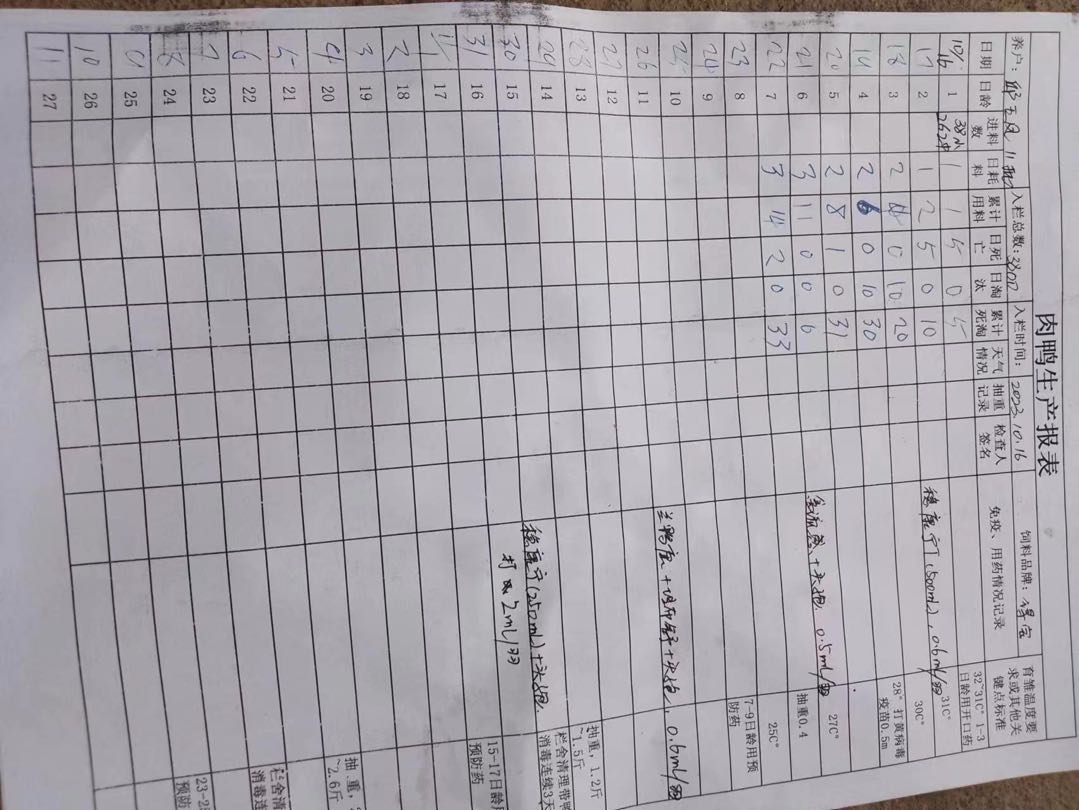 肉鸭生产报表
养户: 11批 入栏总数:3800 入栏时间: 2023.10.16 饲料品牌:
日期 日龄 进料数 日耗料 累计用料 日死亡 日淘汰 累计死淘 天气情况 抽重记录 检查人签名 免疫、用药情况记录 育雏温度要求或其他关键点标准
10/16 1 38小 262中 1 1 5 0 5 32~31C° 1-3日龄用开口药
17 2 1 2 5 0 10 (500ml), 0.6ml/羽 31C° 30C°
18 3 2 4 0 10 20 28° 打黄病毒疫苗0.5m
19 4 2 6 0 10 30
20 5 2 8 1 0 31 0.5ml/羽 27C°
21 6 3 11 0 0 6 抽重0.4
22 7 3 14 2 0 33 25C°
23 8 7-9日龄用预防药
24 9
25 10 0.6ml/羽
26 11
27 12
28 13 抽重,1.2斤~1.5斤
29 14 (250ml)+头孢. 栏舍清理带鸭消毒连续3天
30 15 打 2ml/羽 15-17日龄用预防药
31 16
11/1 17
2 18
3 19
4 20 抽重, ~2.6斤
5 21
6 22 栏舍清 消毒连
7 23
8 24 23-25 预防
9 25
10 26
11 27